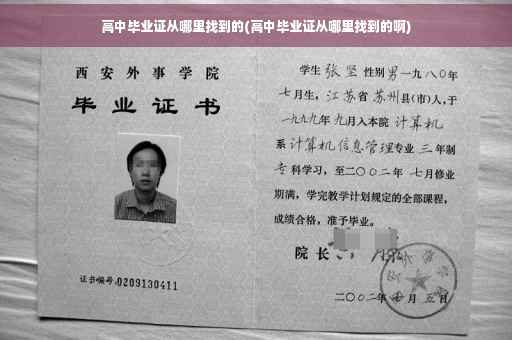 高中毕业证从哪里找到的(高中毕业证从哪里找到的啊)
西安外事学院
毕业证书
证书编号:0209130411
学生 张坚 性别 男 一九八〇年
七月生，江苏省 苏州县(市)人,于
一九九九年 九月入本院 计算机
系 计算机信息管理专业 三 年制
专 科学习，至二〇〇二年 七月修业
期满，学完教学计划规定的全部课程，
成绩合格，准予毕业。
院长
二〇〇二年 月 五日